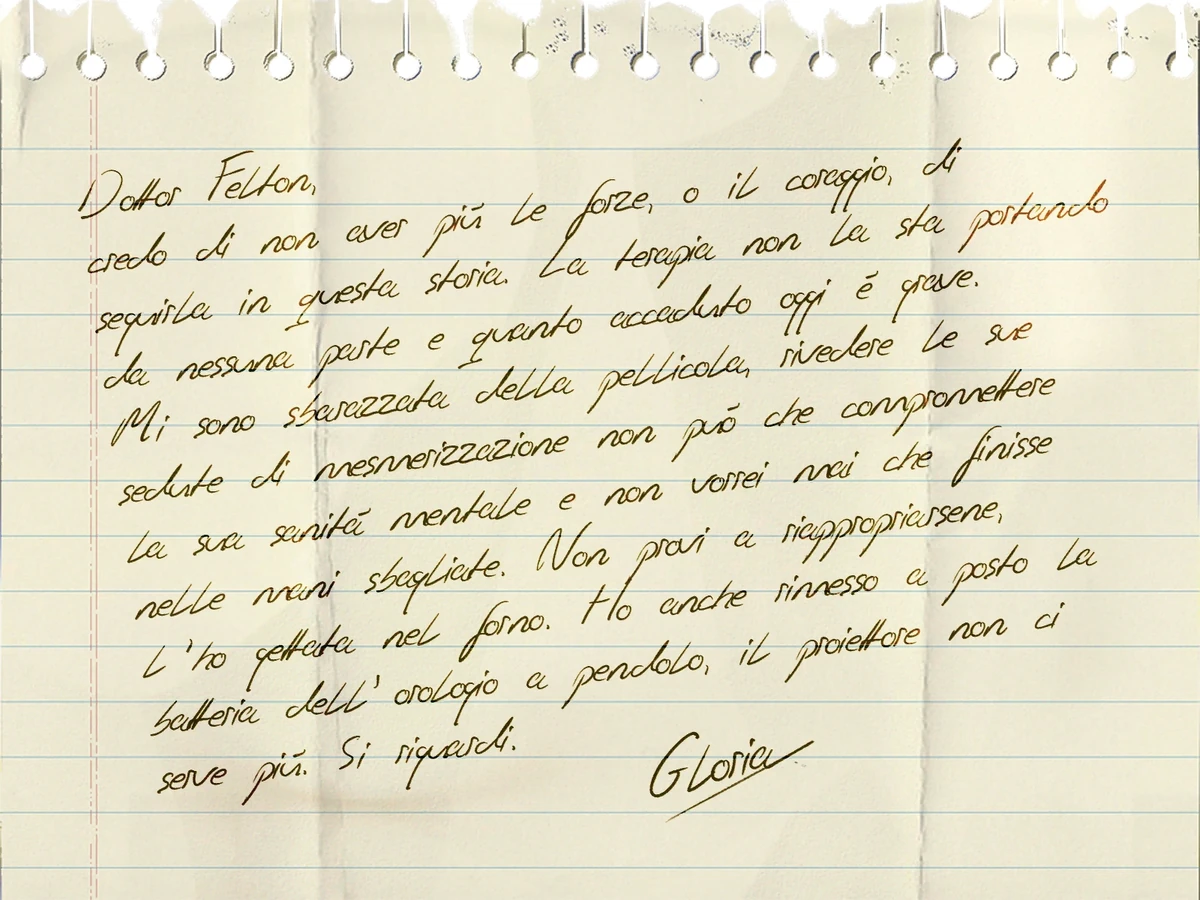 Dottor Felton,
credo di non aver più le forze, o il coraggio, di
seguirla in questa storia. La terapia non la sta portando
da nessuna parte e quanto accaduto oggi é grave.
Mi sono sbarazzata della pellicola, rivedere le sue
sedute di mesmerizzazione non può che compromettere
la sua sanità mentale e non vorrei mai che finisse
nelle mani sbagliate. Non provi a riappropriarsene,
l'ho gettata nel forno. Ho anche rimesso a posto la
batteria dell'orologio a pendolo, il proiettore non ci
serve più. Si riguardi.
Gloria